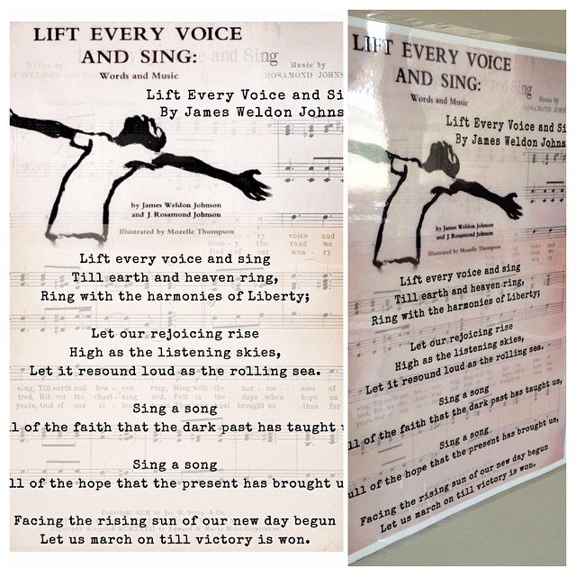 LIFT EVERY VOICE
AND SING:
Words and Music
Lift Every Voice and Si
By James Weldon Johns
by James Weldon Johnson
and J. Rosamond Johnson
Illustrated by Mozelle Thompson
Lift every voice and sing
Till earth and heaven ring,
Ring with the harmonies of Liberty;
Let our rejoicing rise
High as the listening skies,
Let it resound loud as the rolling sea.
Sing a song
ll of the faith that the dark past has taught u
Sing a song
ll of the hope that the present has brought u
Facing the rising sun of our new day begun
Let us march on till victory is won.
LIFT EVERY VOICE
AND SING:
Words and Music
Lift Every Voice and Si
By James Weldon Johns
by James Weldon Johnson
and J. Rosamond Johnson
Illustrated by Mozelle Thompson
Lift every voice and sing
Till earth and heaven ring,
Ring with the harmonies of Liberty;
Let our rejoicing rise
High as the listening skies,
Let it resound loud as the rolling sea.
Sing a song
ll of the faith that the dark past has taught us,
Sing a song
ll of the hope that the present has brought us,
Facing the rising sun of our new day begun
Let us march on till victory is won.